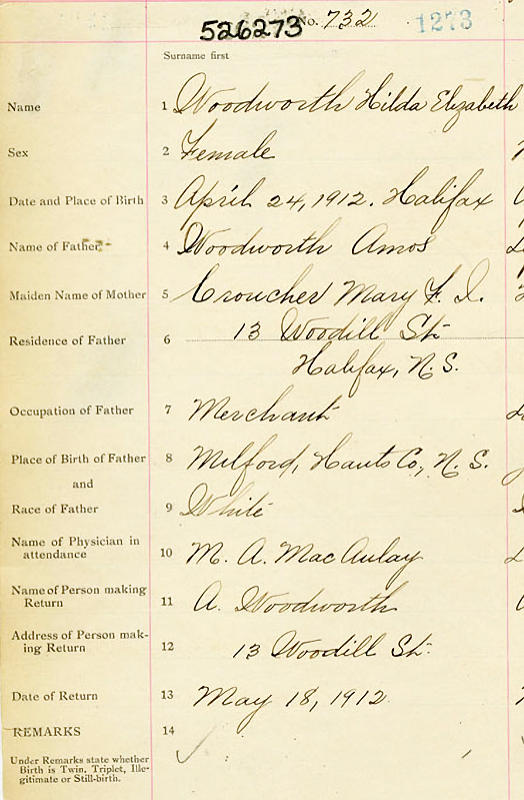 526273 No. 732 1273
Surname first
Name 1 Woodworth Hilda Elizabeth
Sex 2 Female
Date and Place of Birth 3 April 24, 1912. Halifax
Name of Father 4 Woodworth Amos
Maiden Name of Mother 5 Croucher Mary F. I.
Residence of Father 6 13 Woodill St.
Halifax, N.S.
Occupation of Father 7 Merchant
Place of Birth of Father 8 Milford, Hants Co., N.S.
and
Race of Father 9 White
Name of Physician in
attendance 10 M. A. MacAulay
Name of Person making
Return 11 A. Woodworth
Address of Person mak-
ing Return 12 13 Woodill St.
Date of Return 13 May 18, 1912
REMARKS 14
Under Remarks state whether
Birth is Twin, Triplet, Ille-
gitimate or Still-birth.